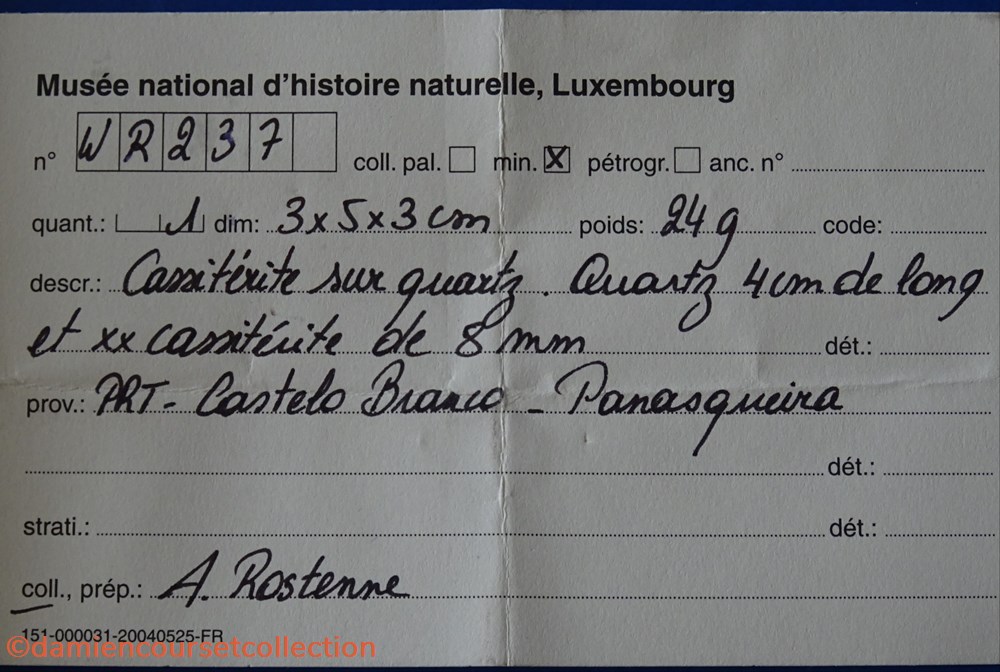 Musée national d'histoire naturelle, Luxembourg
n° WR237 coll. pal. min. X pétrogr. anc. n°
quant.: 1 dim: 3x5x3 cm poids: 24 g code:
descr.: Cassitérite sur quartz. Quartz 4 cm de long
et xx cassitérite de 8 mm dét.:
prov.: PRT - Castelo Branco - Panasqueira
dét.:
strati.: dét.:
coll., prép.: A. Rostenne
151-000031-20040525-FR
©damiencoursetcollection